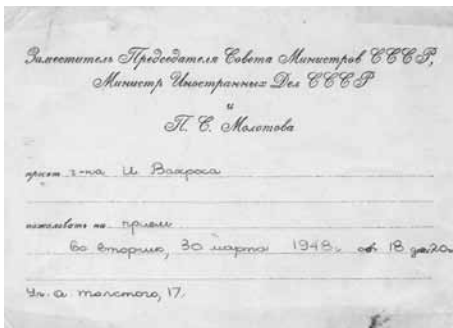 Заместитель Председателя Совета Министров СССР,
Министр Иностранных Дел СССР
и
П. С. Молотова
просят г-на И Вахроса
пожаловать на прием
во вторник, 30 марта 1948г. от 18 до 20ч.
Ул. А. Толстого, 17.